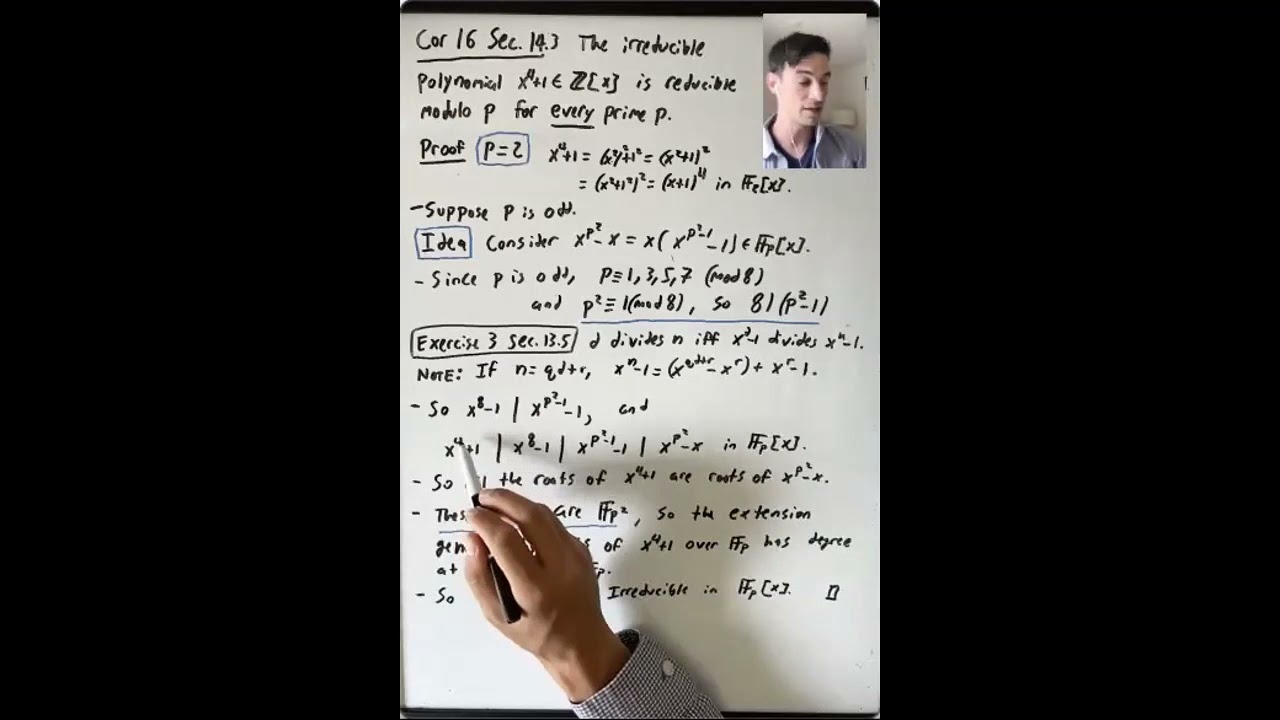 Cor 16 Sec. 14.3 The irreducible
polynomial x⁴+1 ∈ ℤ[x] is reducible
modulo p for every prime p.
Proof P=2 x⁴+1 = (x²)²+1² = (x²+1)²
= (x²+1²)² = (x+1)⁴ in 𝔽₂[x].
- Suppose p is odd.
Idea Consider x^{p²} - x = x(x^{p²-1} - 1) ∈ 𝔽p[x].
- Since p is odd, P≡1,3,5,7 (mod 8)
and p² ≡ 1 (mod 8), so 8 | (p²-1)
Exercise 3 Sec. 13.5 d divides n iff x^d-1 divides x^n-1.
NOTE: If n = qd+r, x^n-1 = (x^{qd+r} - x^r) + x^r - 1.
- So x⁸-1 | x^{p²-1}-1, and
x⁴+1 | x⁸-1 | x^{p²-1}-1 | x^{p²}-x in 𝔽p[x].
- So the roots of x⁴+1 are roots of x^{p²}-x.
- are 𝔽p², so the extension
of x⁴+1 over 𝔽p has degree
at
- So Irreducible in 𝔽p[x]. □